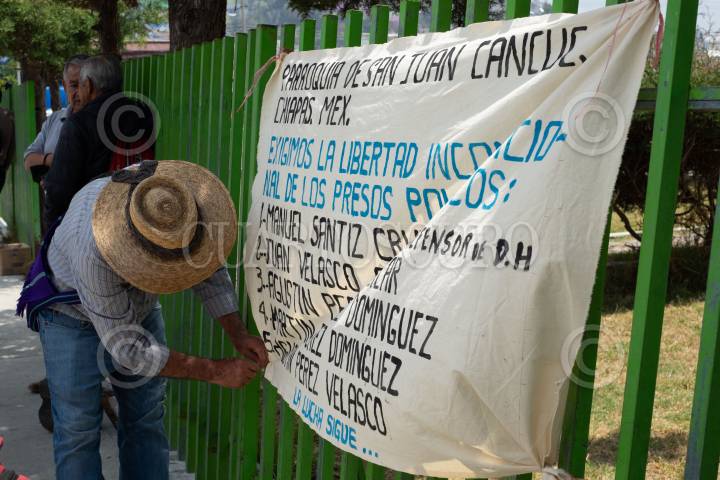 PARROQUIA DE SAN JUAN CANCUC.
CHIAPAS MEX.
EXIGIMOS LA LIBERTAD INCONDICIO-
NAL DE LOS PRESOS
1-MANUEL SANTIZ DE D.H
2-JUAN VELASCO
3-AGUSTIN
4- DOMINGUEZ
DOMINGUEZ
PEREZ VELASCO
LA LUCHA SIGUE...